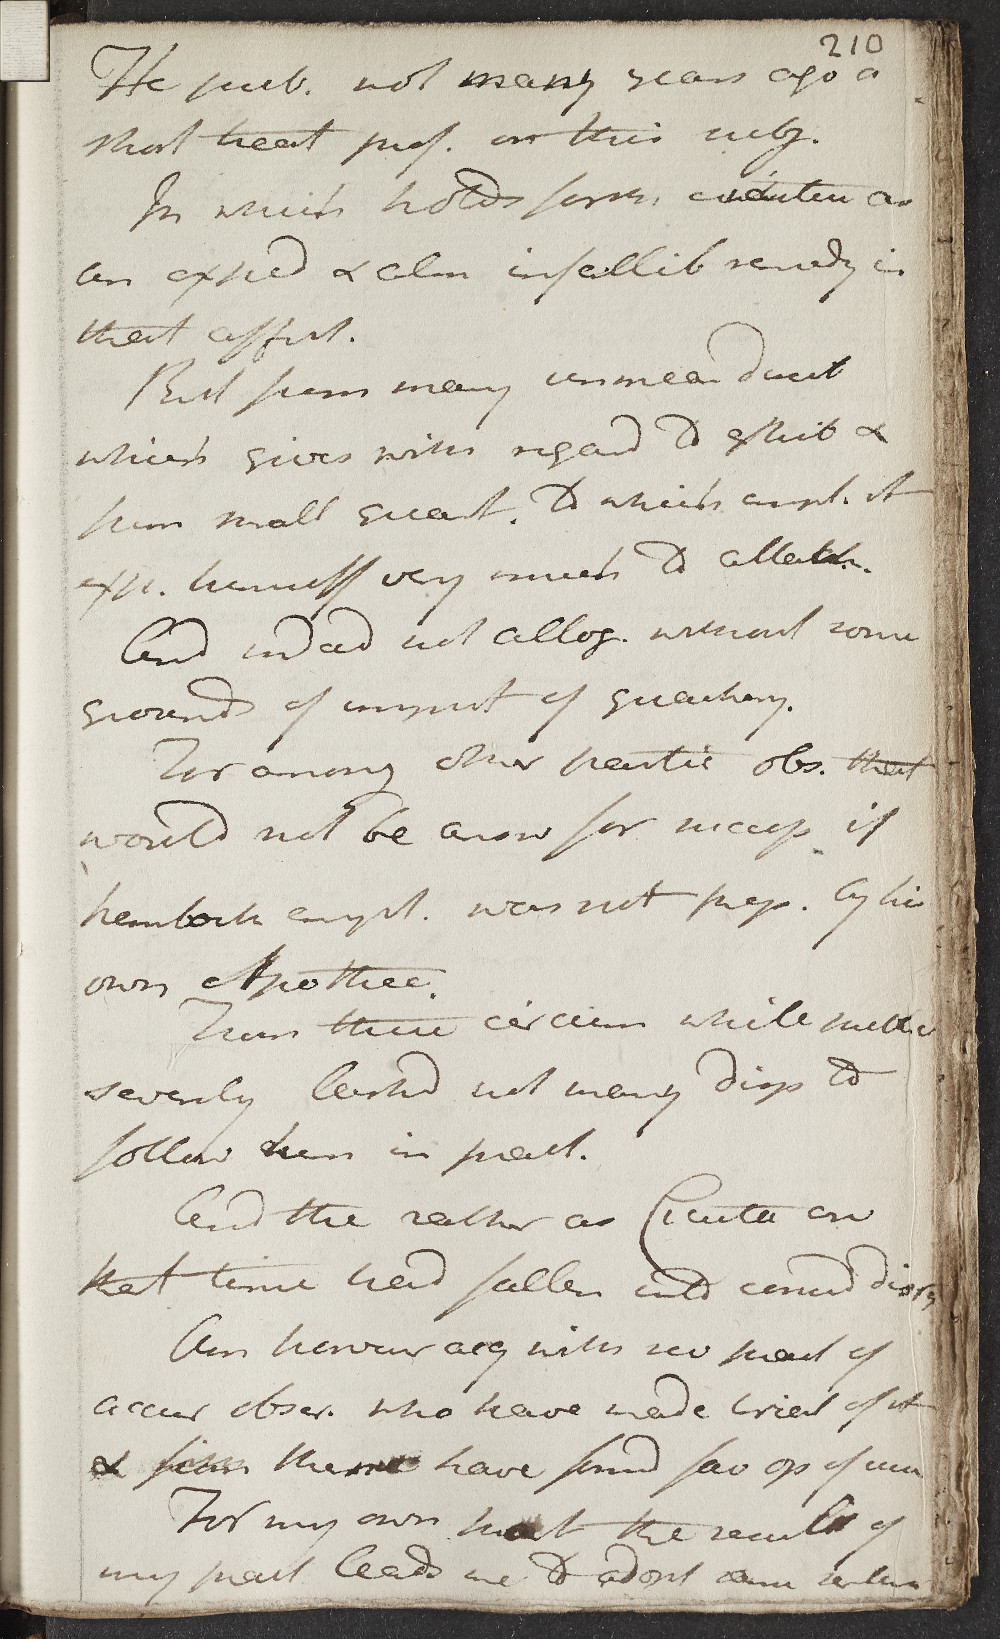 210
He pub. not many years ago a
short treat prof. on this subj.
In which holds forth cicuta as
an exped & alm infallib remedy in
that affect.
But from many unmean
which gives with regard to exhib &
from small quant. to which empl. it
exp. himself very much to
And indeed not alleg. without some
grounds of imput of quackery.
For among other partic obs. that
would not be answ for success if
hemlock empl. was not prep. by his
own Apothec.
From these circum while
severely lashd not many disp to
follow him in pract.
And the rather as Cicuta on
that time had fallen into consid
Am however acq with sev pract of
accur obser. who have made trial of it
& have found fav op of
For my own part the result of
my pract leads me to adopt same